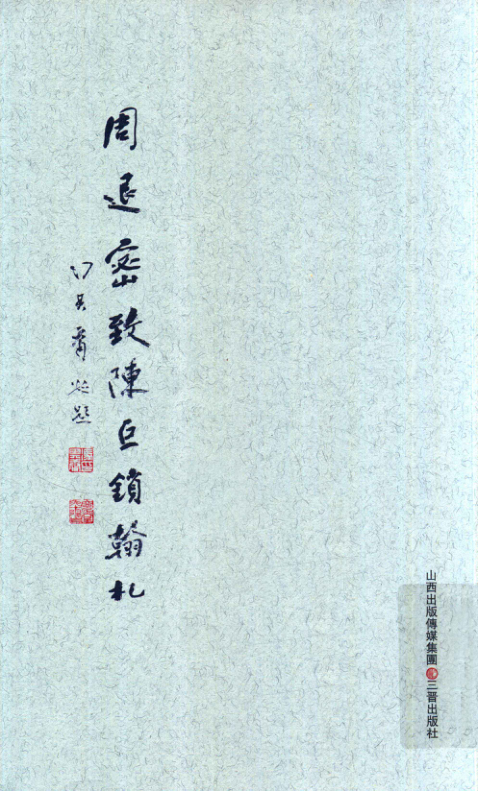 周退密致陳巨鎖翰札
山西出版傳媒集團 三晋出版社